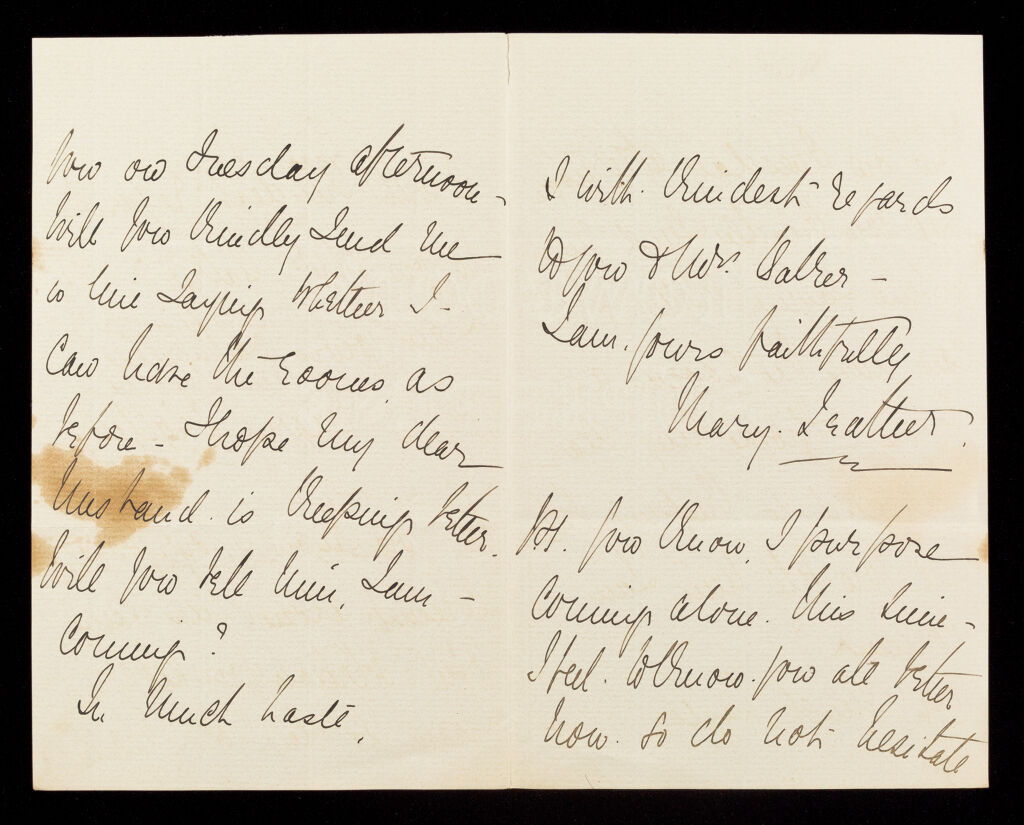 you on Tuesday afternoon -
Will you kindly send me
a line saying whether I -
can have the rooms as
before - I hope my dear
husband is keeping better.
Will you tell him, I am -
coming?
In much haste,
I with kindest regards
to you & Mrs. Baker -
I am. yours faithfully
Mary. Leather.
PS. you know, I purpose
coming alone. this time -
I feel. to know. you all better
now. so do not hesitate